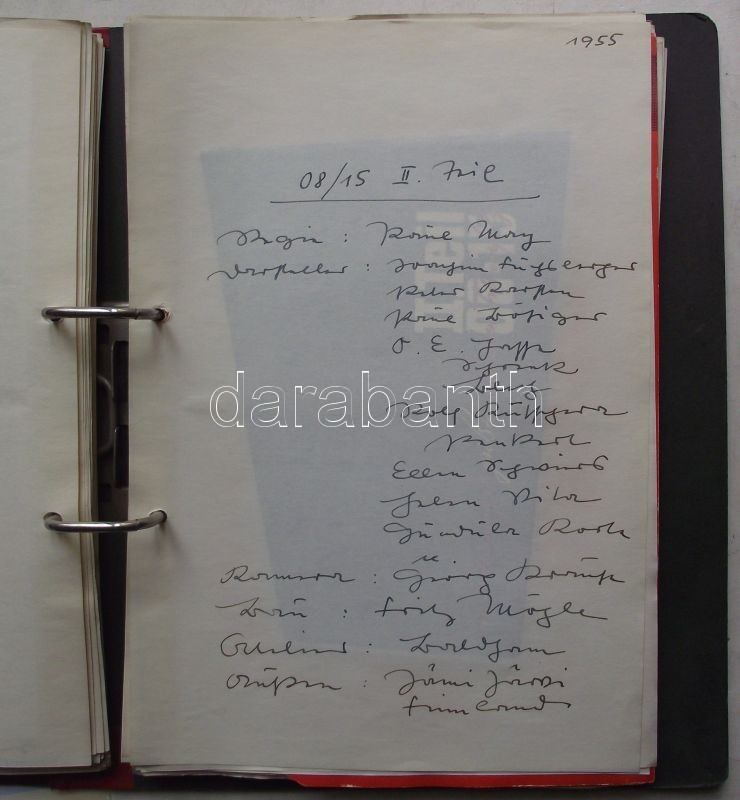 1955
08/15 II. Teil
Regie : Paul May
Darsteller : Joachim Fuchsberger
Peter Carsten
Paul Bösiger
O. E. Hasse
darabanth
Ellen Schwiers
Helen Vita
Gundula Korte
Kamera : Georg Krause
Bau : Fritz Mögle
Atelier : Baldham
Außen : Jämi Järvi
Finnland